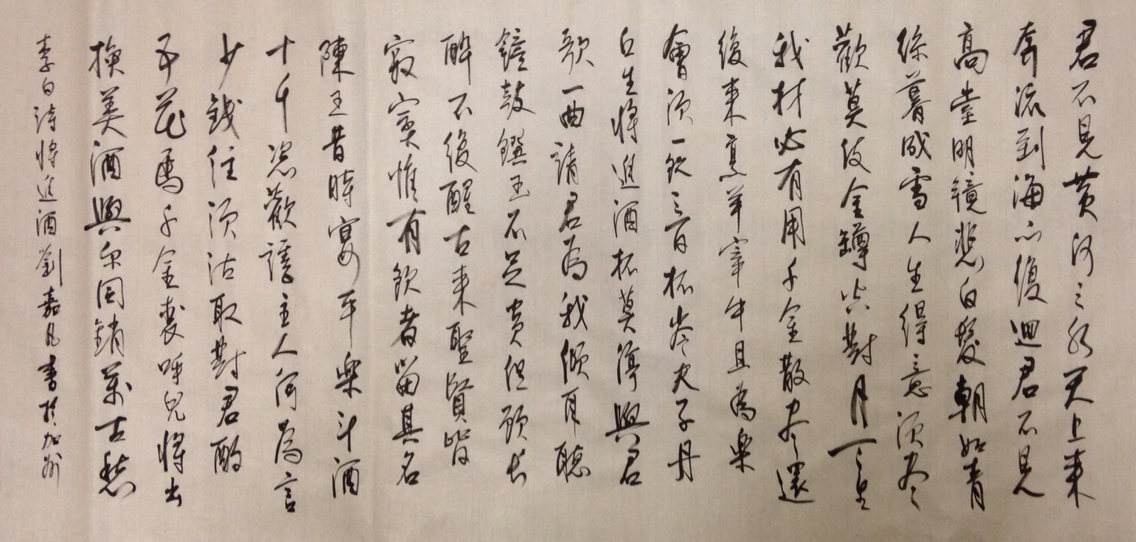 君不見黄河之水天上来
奔流到海不復迴君不見
高堂明鏡悲白髮朝如青
絲暮成雪人生得意須盡
歡莫使金罇空對月天生
我材必有用千金散盡還
復来烹羊宰牛且為樂
會須一飲三百杯岑夫子丹
丘生將進酒杯莫停與君
歌一曲請君為我傾耳聽
鐘鼓饌玉不足貴但願長
醉不復醒古来聖賢皆
寂寞惟有飲者留其名
陳王昔時宴平樂斗酒
十千恣歡謔主人何為言
少錢徑須沽取對君酌
五花馬千金裘呼兒將出
換美酒與爾同銷萬古愁
李白詩將進酒劉嘉凡書於加州